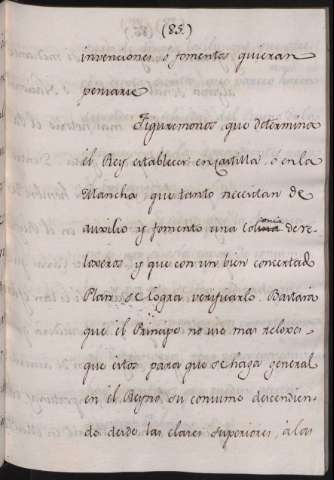 (85.)
invenciones, o fomentos quieran
pensarse.
Figuremonos, que determina
el Rey establecer en Castilla, ó en la
Mancha, que tanto necesitan de
auxilio y fomento una colonia de re-
loxeros, y que con un bien concertado
Plan se logra verificarlo. Bastará
que el Principe no use mas reloxes
que estos para que se haga general
en el Reyno su consumo descendien-
do desde las clases superiores, á las